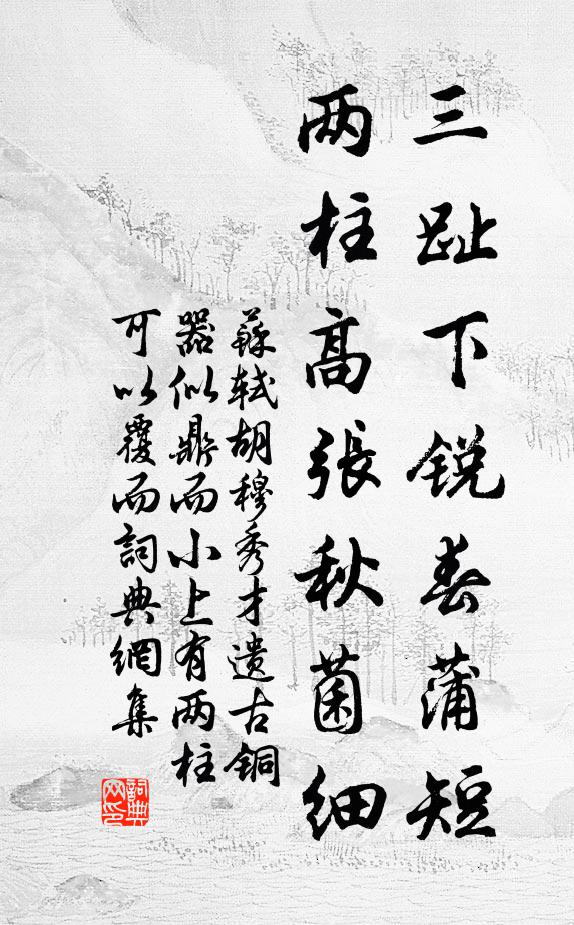 三趾下锐春蒲短
两柱高張秋菌细
蘇轼胡穆秀才遗古铜
器似鼎而小上有两柱
可以覆而詞典網集
詞典
网印